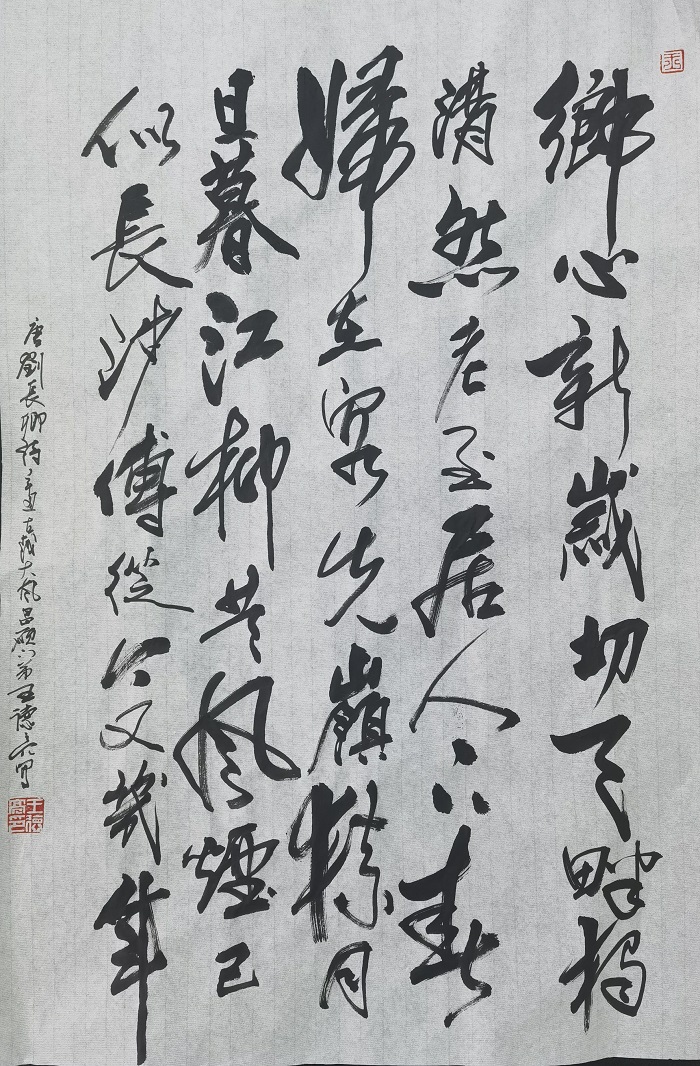 鄉心新歲切天畔獨
潸然老至居人下春
歸在客先嶺猿同
旦暮江柳共風煙已
似長沙傅從今又幾年
唐劉長卿詩 大風 王德 寫